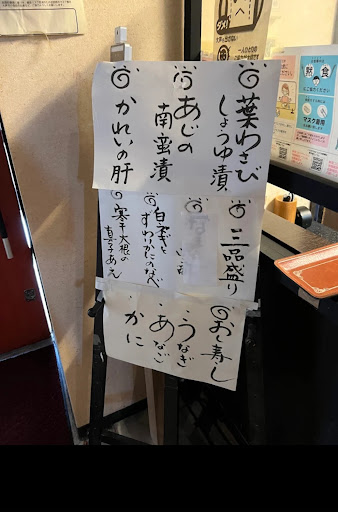 葉わさび
しょうゆ漬
あじの
南蛮漬
かれいの肝
三品盛り
白ネギと
ずわりかにのなべ
寒干大根の
真子あえ
おし寿し
うなぎ
あなご
かに
黙食
マスク着用